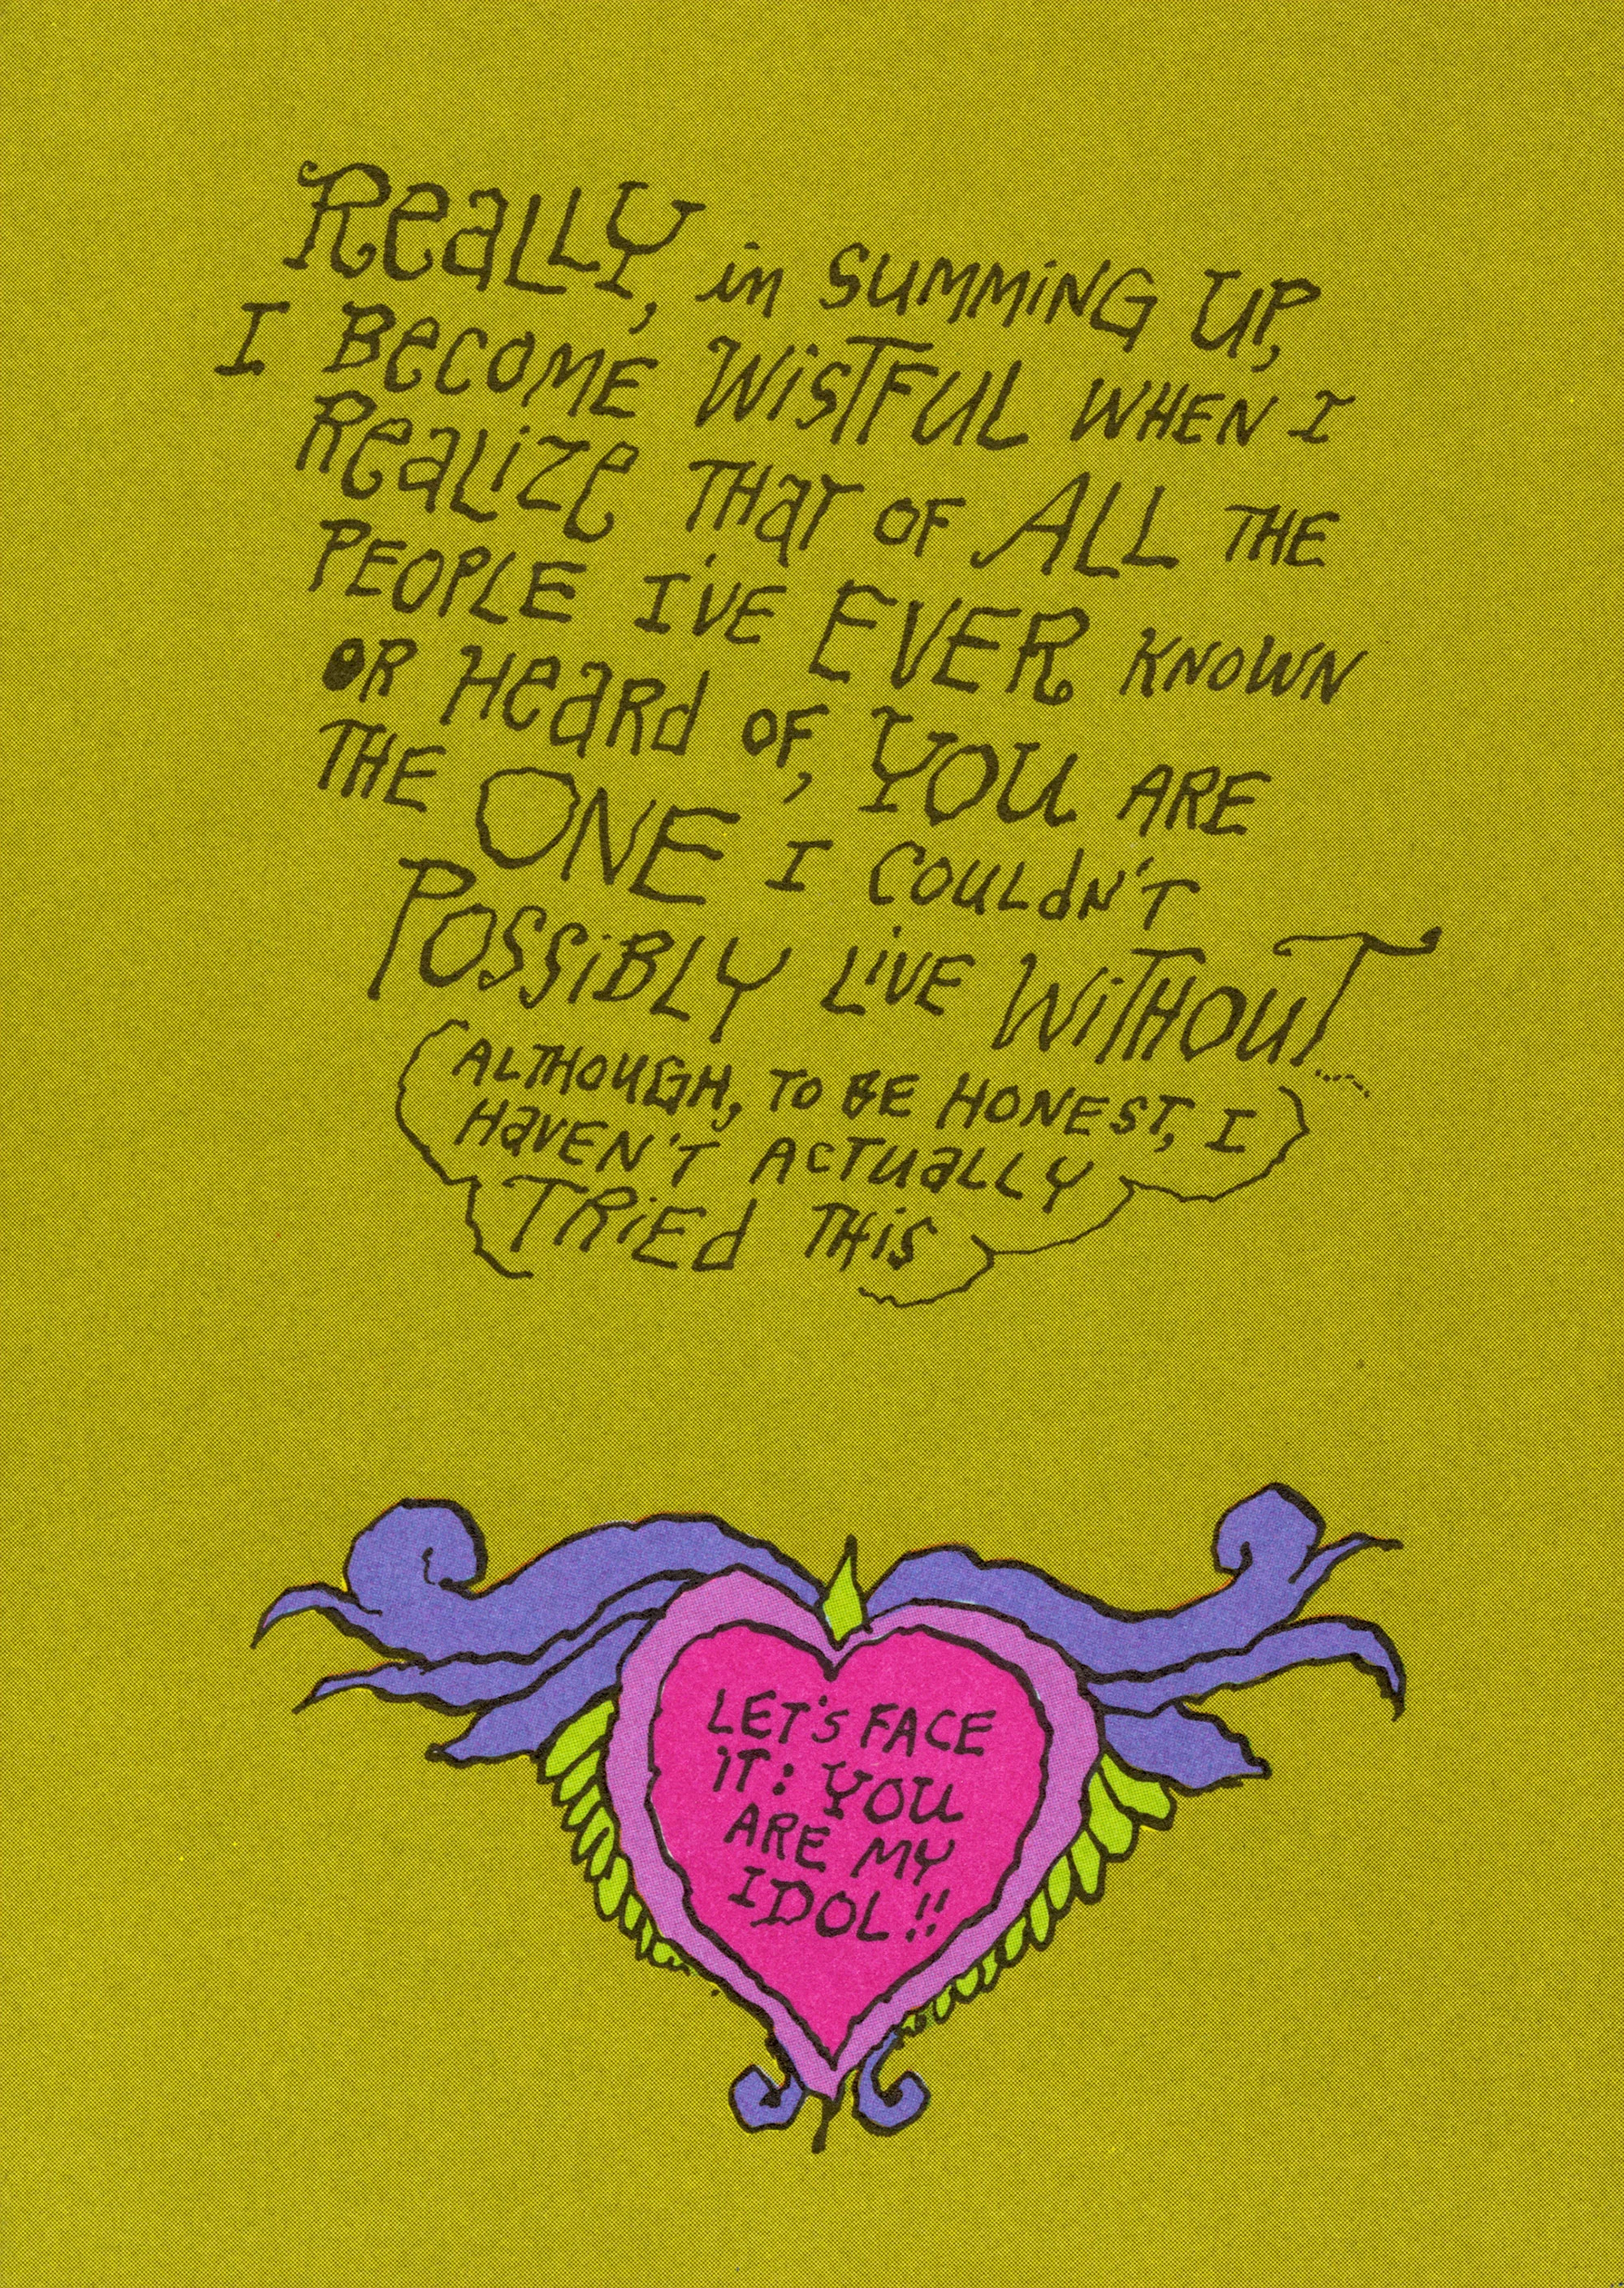 Really, in SUMMING UP,
I BECOME WISTFUL WHEN I
Realize THAT OF ALL THE
PEOPLE I'VE EVER KNOWN
OR Heard OF, YOU ARE
THE ONE I COULDN'T
POSSIBLY LIVE WITHOUT....
(ALTHOUGH, TO BE HONEST, I
HAVEN'T ACTUALLY
TRIED THIS)
LET'S FACE
IT: YOU
ARE MY
IDOL!!